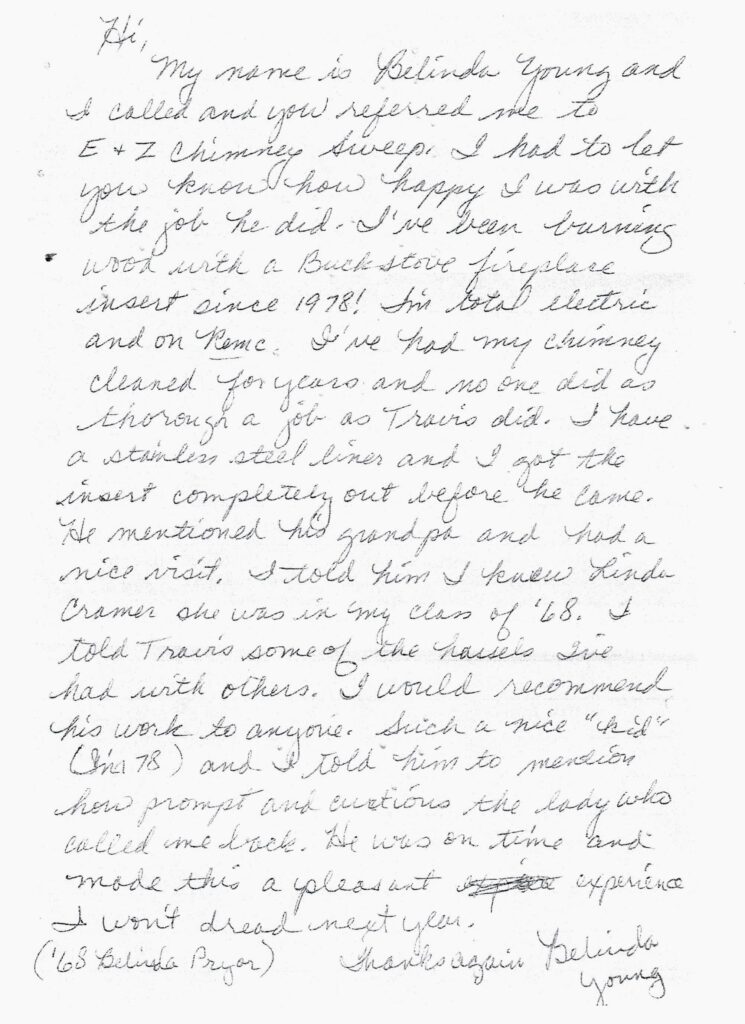 Hi,
My name is Belinda Young and
I called and you referred me to
E + Z Chimney Sweep. I had to let
you know how happy I was with
the job he did. I've been burning
wood with a Buckstove fireplace
insert since 1978! I'm total electric
and on Remc. I've had my chimney
cleaned for years and no one did as
thorough a job as Travis did. I have
a stainless steel liner and I got the
insert completely out before he came.
He mentioned his grandpa and had a
nice visit. I told him I knew Linda
Cramer she was in my class of '68. I
told Travis some of the hassels I've
had with others. I would recommend
his work to anyone. Such a nice "kid"
(I'm 78) and I told him to mention
how prompt and cuctious the lady who
called me back. He was on time and
made this a pleasant experience
I won't dread next year.
('68 Belinda Pryor) Thanks again Belinda
Young